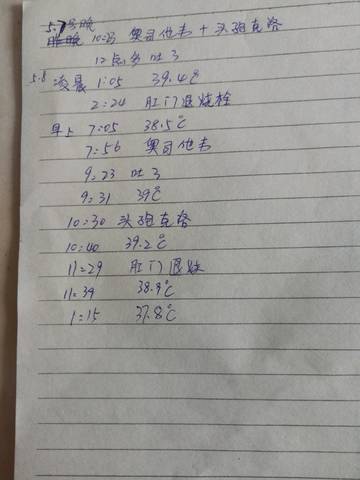 5.7号晚
昨晚 10:03 奥司他韦 + 头孢克洛
12点多吐了
5.8 凌晨 1:05 39.4℃
2:24 肛门退烧栓
早上 7:05 38.5℃
7:56 奥司他韦
9:23 吐了
9:31 39℃
10:30 头孢克洛
10:40 39.2℃
11:29 肛门退烧
11:39 38.9℃
1:15 37.8℃